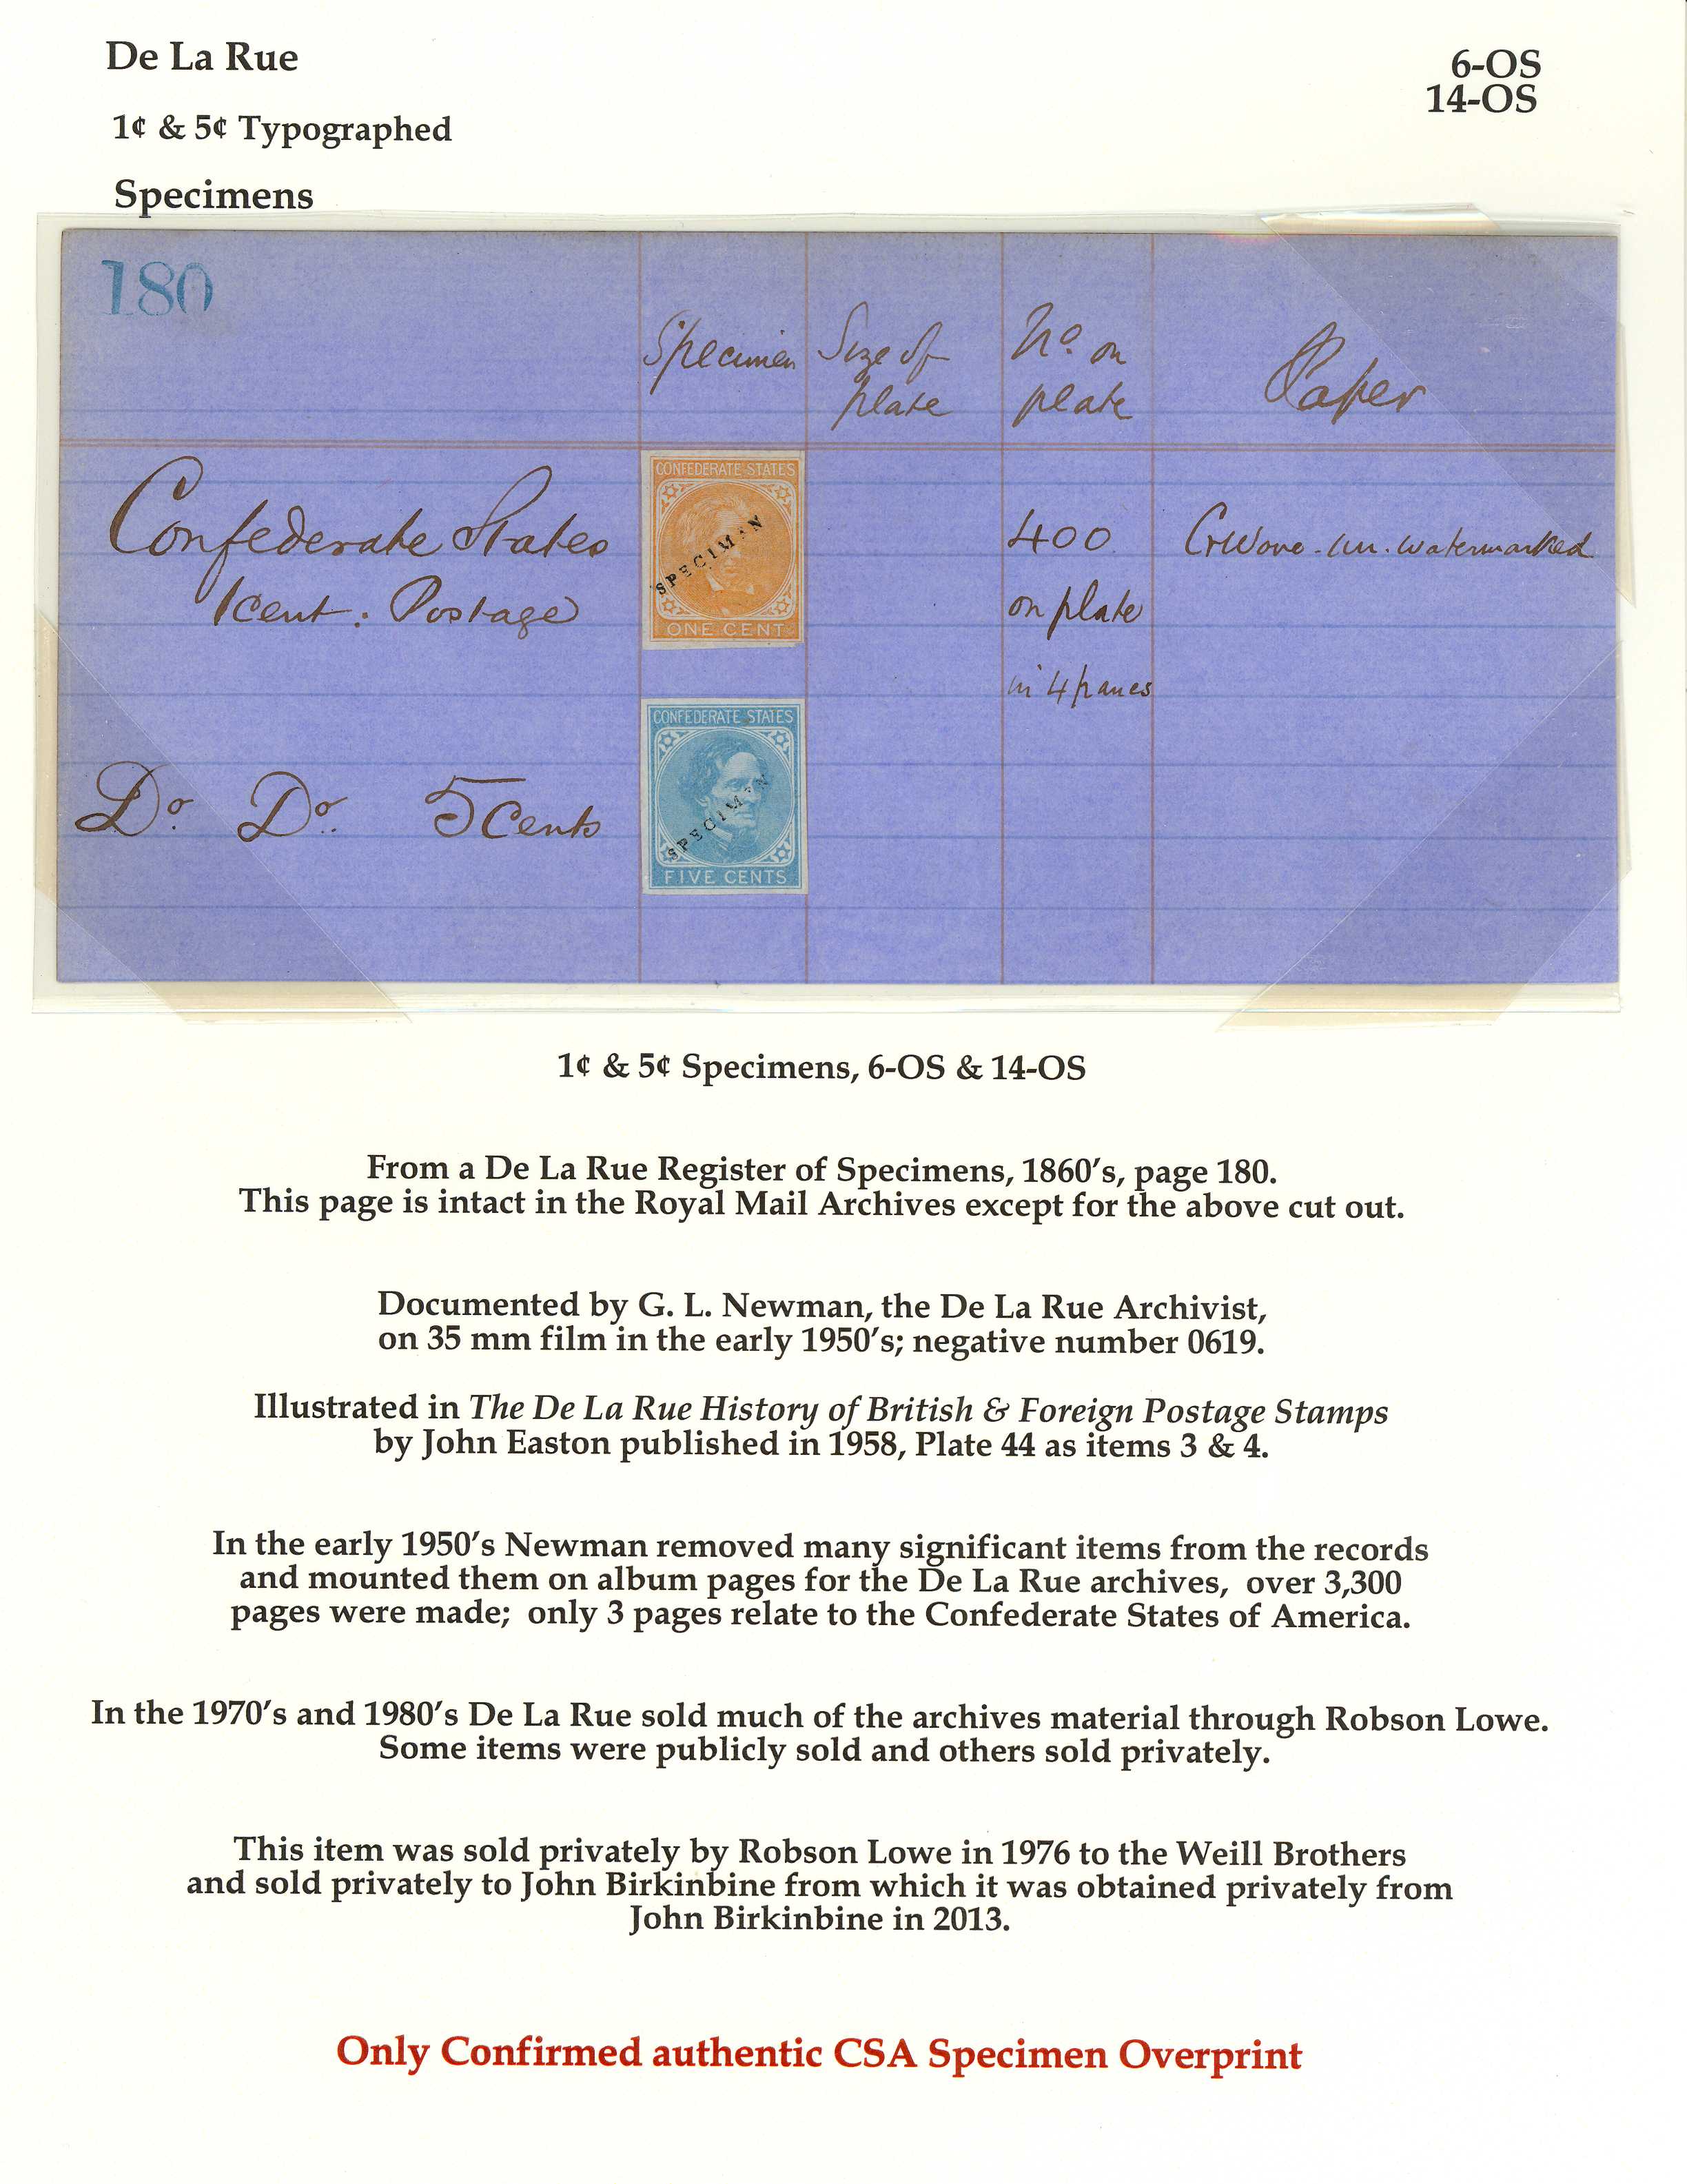 De La Rue
6-OS
14-OS
1¢ & 5¢ Typographed
Specimens
180
Specimen
Size of
plate
No. on
plate
Paper
Confederate States
1 cent : Postage
CONFEDERATE STATES
SPECIMEN
ONE CENT
400
on plate
in 4 panes
wove - un. watermarked
Do. Do. 5 Cents
CONFEDERATE STATES
SPECIMEN
FIVE CENTS
1¢ & 5¢ Specimens, 6-OS & 14-OS
From a De La Rue Register of Specimens, 1860's, page 180.
This page is intact in the Royal Mail Archives except for the above cut out.
Documented by G. L. Newman, the De La Rue Archivist,
on 35 mm film in the early 1950's; negative number 0619.
Illustrated in The De La Rue History of British & Foreign Postage Stamps
by John Easton published in 1958, Plate 44 as items 3 & 4.
In the early 1950's Newman removed many significant items from the records
and mounted them on album pages for the De La Rue archives, over 3,300
pages were made; only 3 pages relate to the Confederate States of America.
In the 1970's and 1980's De La Rue sold much of the archives material through Robson Lowe.
Some items were publicly sold and others sold privately.
This item was sold privately by Robson Lowe in 1976 to the Weill Brothers
and sold privately to John Birkinbine from which it was obtained privately from
John Birkinbine in 2013.
Only Confirmed authentic CSA Specimen Overprint